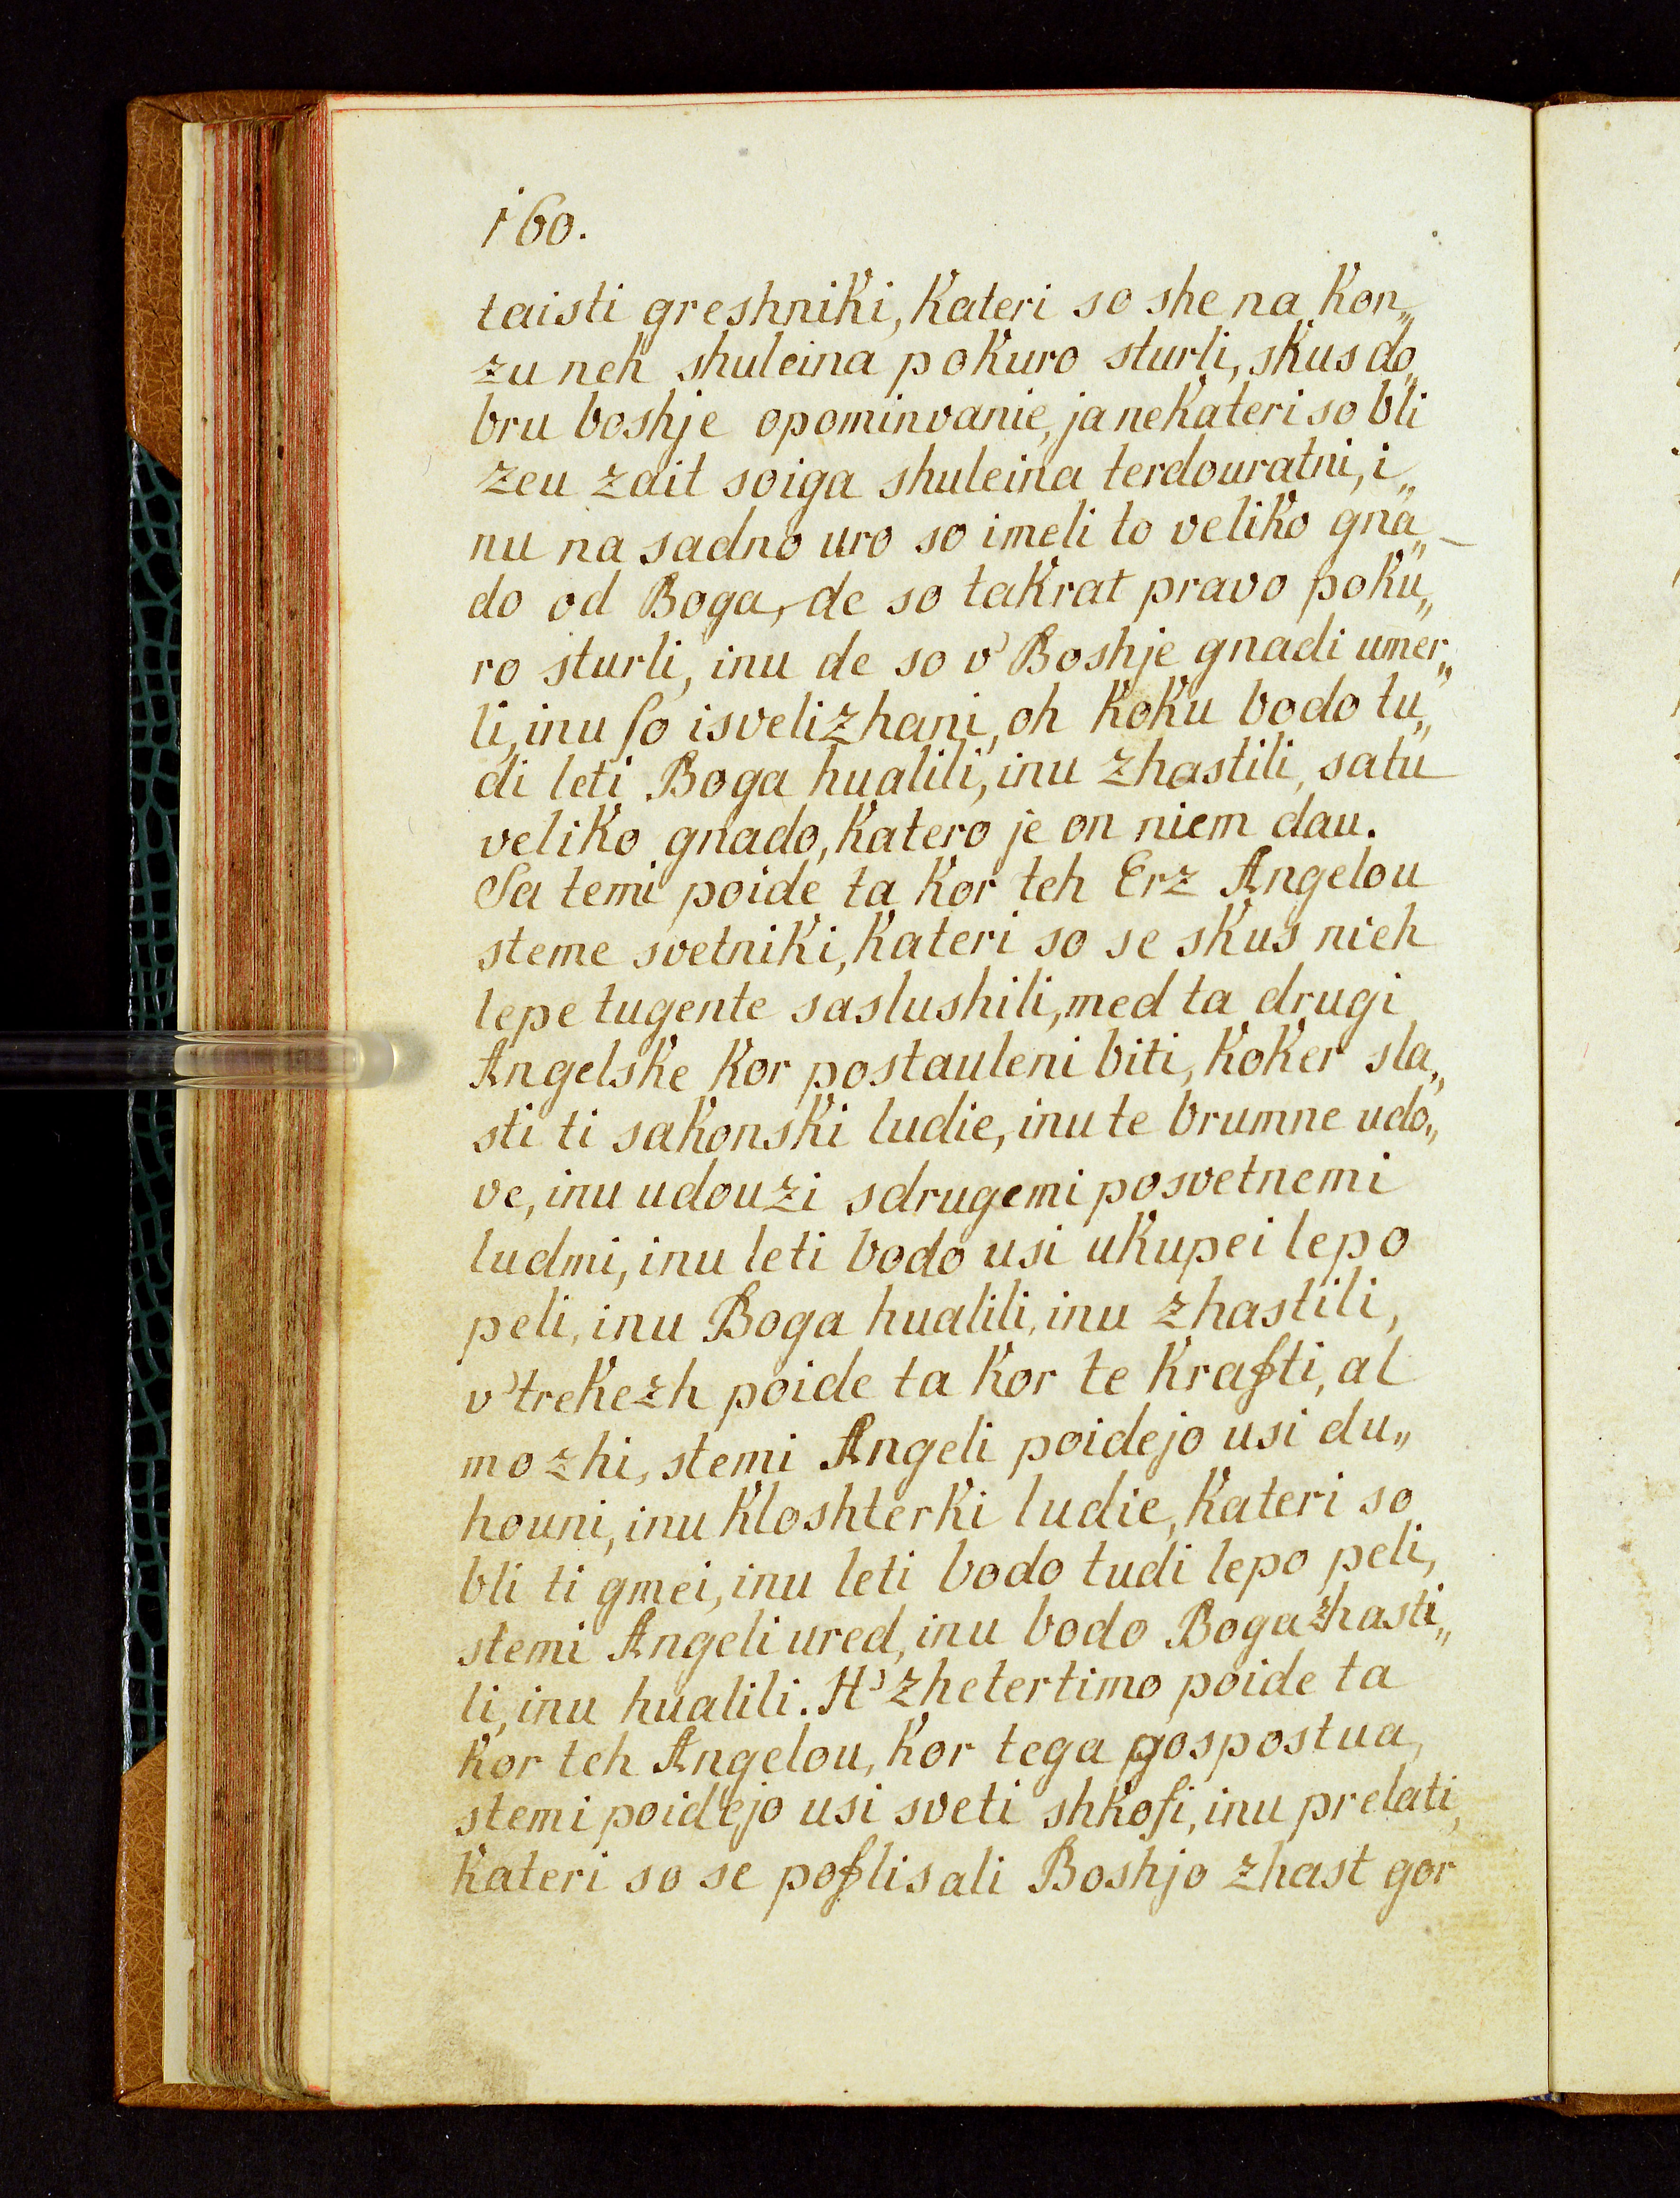 160.
taisti greshniki, kateri so she na kon„
zu neh shuleina pokuro sturli, skus do„
bru boshje opominvanie, ja nekateri so bli
zeu zait soiga shuleina terdouratni, i„
nu na sadno uro so imeli to veliko gna„
do od Boga, de so takrat pravo poku„
ro sturli, inu de so v' Boshje gnadi umer„
li, inu ſo isvelizhani, oh koku bodo tu„
di leti Boga hualili, inu zhastili, satu
veliko gnado, katero je on niem dau.
Sa temi poide ta kor teh Erz Angelou
steme svetniki, kateri so se skus nieh
lepe tugente saslushili, med ta drugi
Angelske kor postauleni biti, koker sla„
sti ti sakonski ludie, inu te brumne udo„
ve, inu udouzi sdrugemi posvetnemi
ludmi, inu leti bodo usi ukupei lepo
peli, inu Boga hualili, inu zhastili,
v' trekezh poide ta kor te krafti, al
mozhi, stemi Angeli poidejo usi du„
houni, inu kloshterki ludie, kateri so
bli ti gmei, inu leti bodo tudi lepo peli,
stemi Angeli ured, inu bodo Boga zhasti„
li, inu hualili. H' zhetertimo poide ta
kor teh Angelou, kor tega gospostua,
stemi poidejo usi sveti shkofi, inu prelati,
kateri so se poflisali Boshjo zhast gor